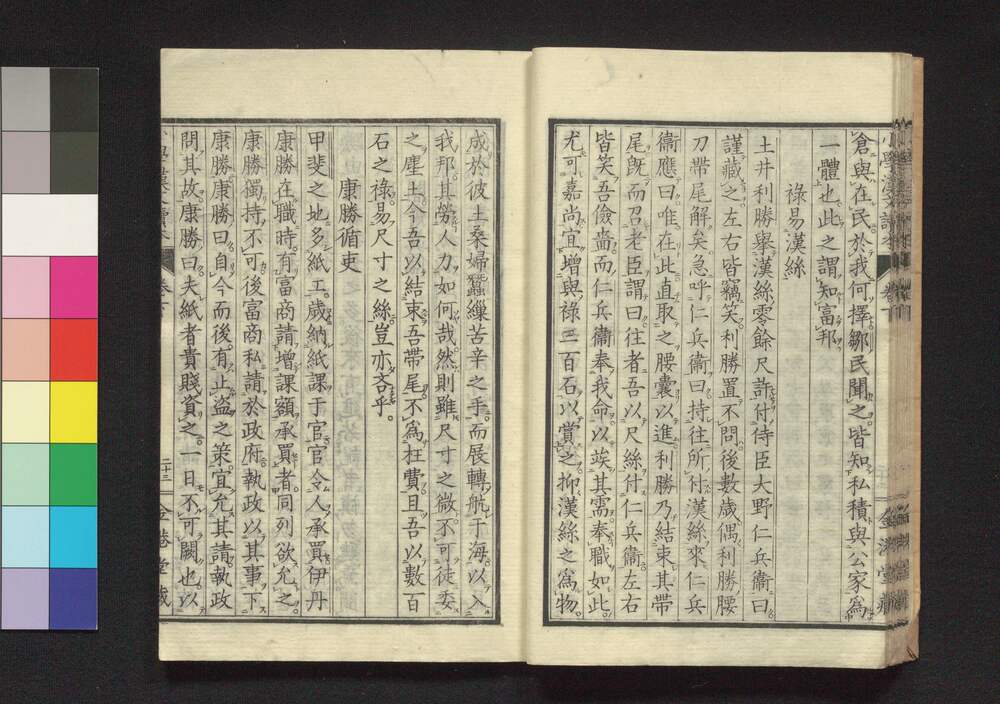 倉與在民於我何擇鄒民聞之皆知私積與公家爲
一體也此之謂知富邦
祿易漢絲
土井利勝舉漢絲零餘尺許付侍臣大野仁兵衞曰
謹藏之左右皆竊笑利勝置不問後數歲偶利勝腰
刀帶尾解矣急呼仁兵衞曰持往所付漢絲來仁兵
衞應曰唯在此直取之腰囊以進利勝乃結束其帶
尾既而召老臣謂曰往者吾以尺絲付仁兵衞左右
皆笑吾儉嗇而仁兵衞奉我命以竢其需奉職如此
尤可嘉尚宜增與祿三百石以賞之抑漢絲之爲物
成於彼土桑婦蠶繅苦辛之手而展轉航于海以入
我邦其勞人力如何哉然則雖尺寸之微不可徒委
之塵土今吾以結束吾帶尾不爲枉費且吾以數百
石之祿易尺寸之絲豈亦吝乎
康勝循吏
甲斐之地多紙工歲納紙課于官官令人承買伊丹
康勝在職時有富商請增課額承買者同列欲允之
康勝獨持不可後富商私請於政府執政以其事下
康勝康勝曰自今而後有止盜之策宜允其請執政
問其故康勝曰夫紙者貴賤資之一日不可闕也以
二十三